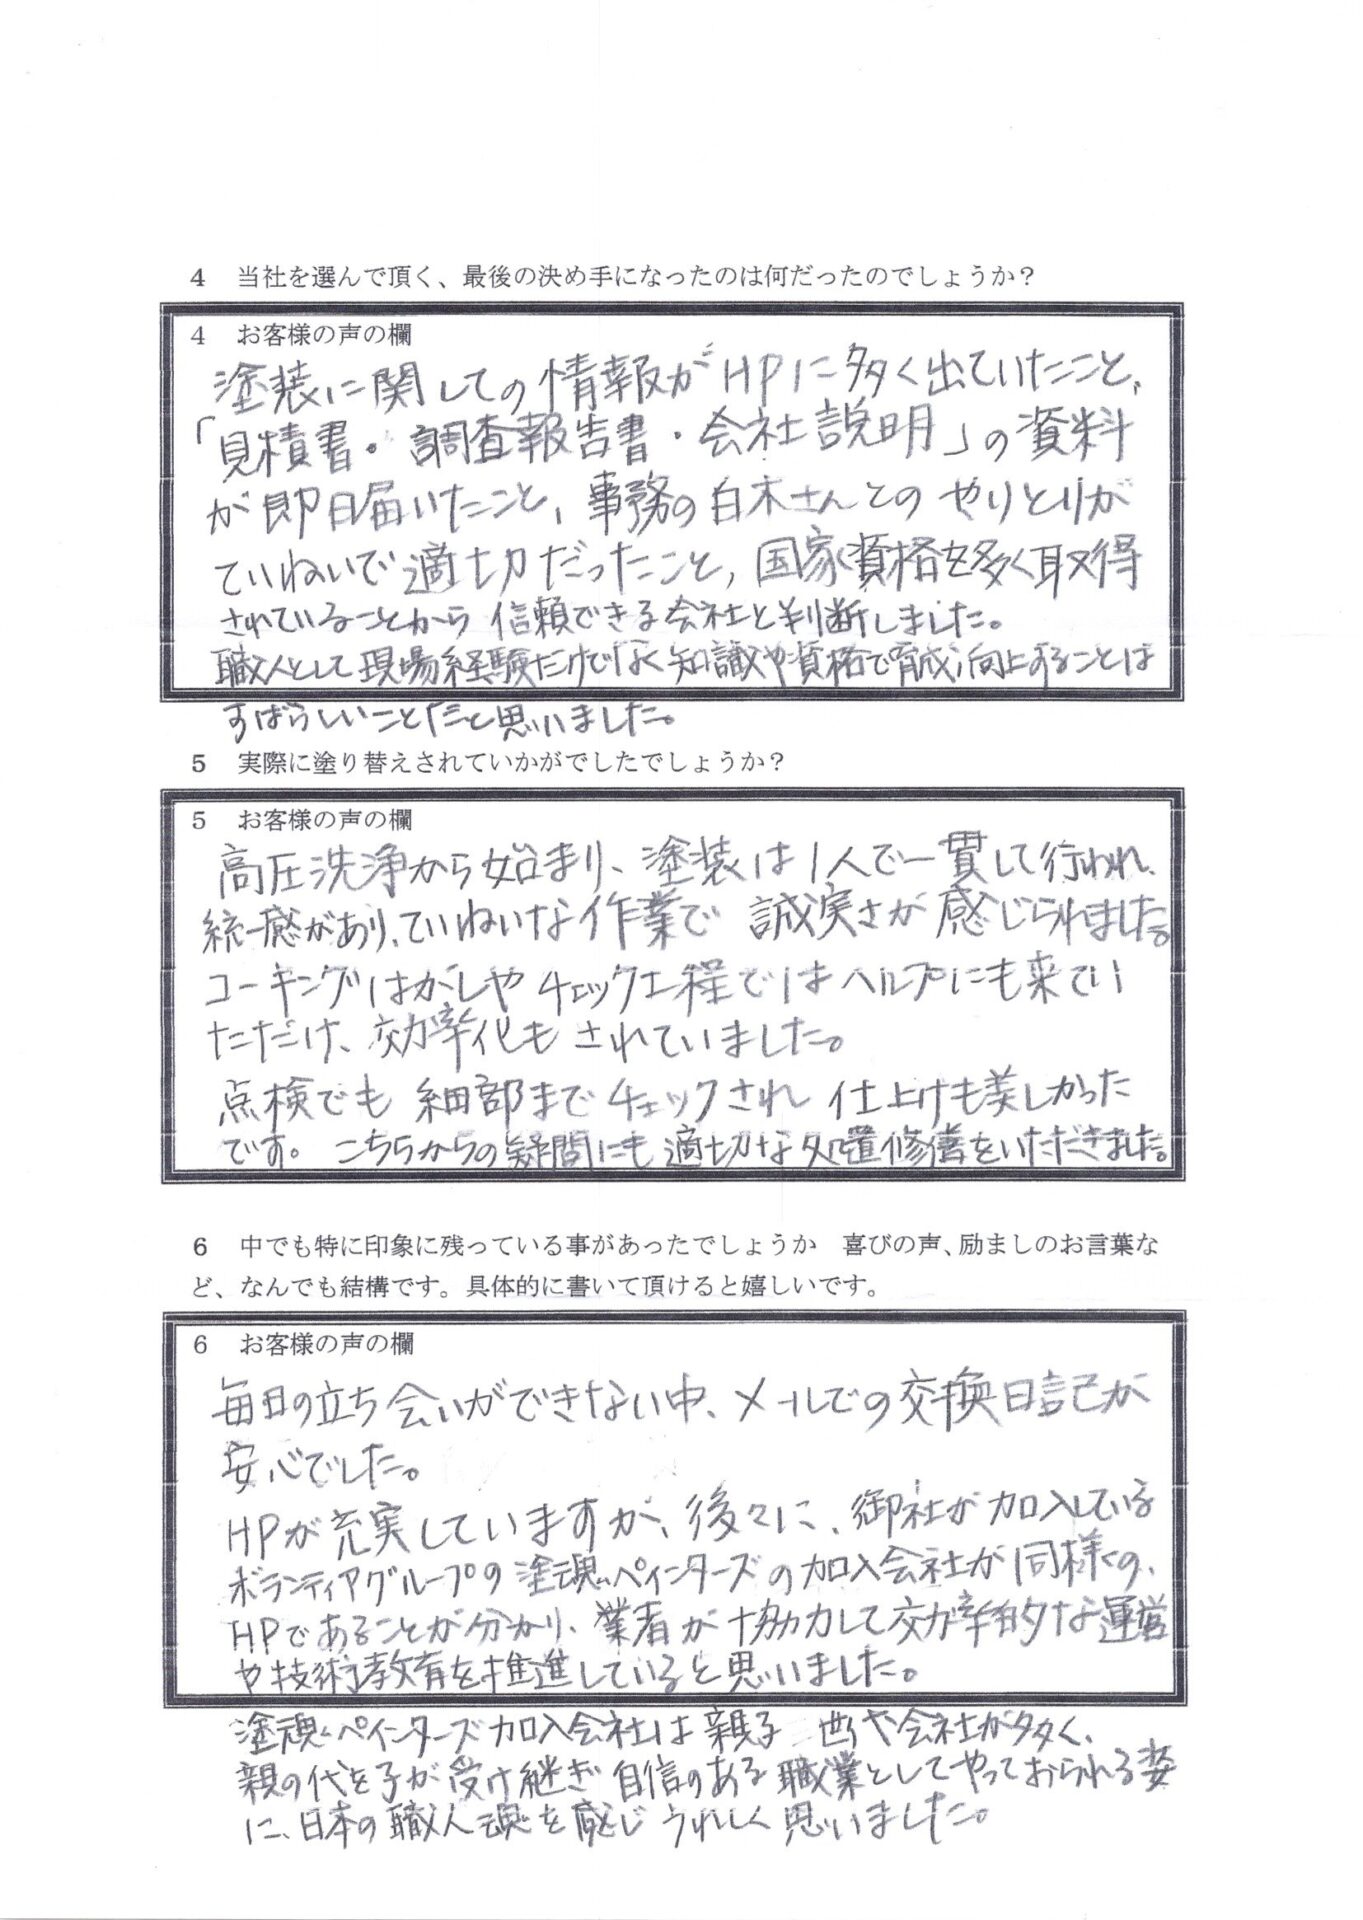 4　当社を選んで頂く、最後の決め手になったのは何だったのでしょうか？
4　お客様の声の欄
塗装に関しての情報がHPに多く出ていたこと、
「見積書・調査報告書・会社説明」の資料
が即日届いたこと、事務の白木さんとのやりとりが
ていねいで適切だったこと、国家資格を多く取得
されていることから信頼できる会社と判断しました。
職人として現場経験だけでなく知識や資格で育成向上することは
すばらしいことだと思いました。
5　実際に塗り替えされていかがでしたでしょうか？
5　お客様の声の欄
高圧洗浄から始まり、塗装は1人で一貫して行われ、
統一感があり、ていねいな作業で誠実さが感じられました。
コーキングはがしやチェック工程ではヘルプにも来てい
ただけ、効率化もされていました。
点検でも細部までチェックされ仕上げも美しかった
です。こちらからの疑問にも適切な処置修繕をいただきました。
6　中でも特に印象に残っている事があったでしょうか　喜びの声、励ましのお言葉な
ど、なんでも結構です。具体的に書いて頂けると嬉しいです。
6　お客様の声の欄
毎日の立ち会いができない中、メールでの交換日記が
安心でした。
HPが充実していますが、後々に、御社が加入している
ボランティアグループの塗魂ペインターズの加入会社が同様の、
HPであることが分かり、業者が協力して効率的な運営
や技術教育を推進していると思いました。
塗魂ペインターズ加入会社は親子や会社が多く、
親の代を子が受け継ぎ自信のある職業としてやっておられる姿
に、日本の職人魂を感じうれしく思いました。